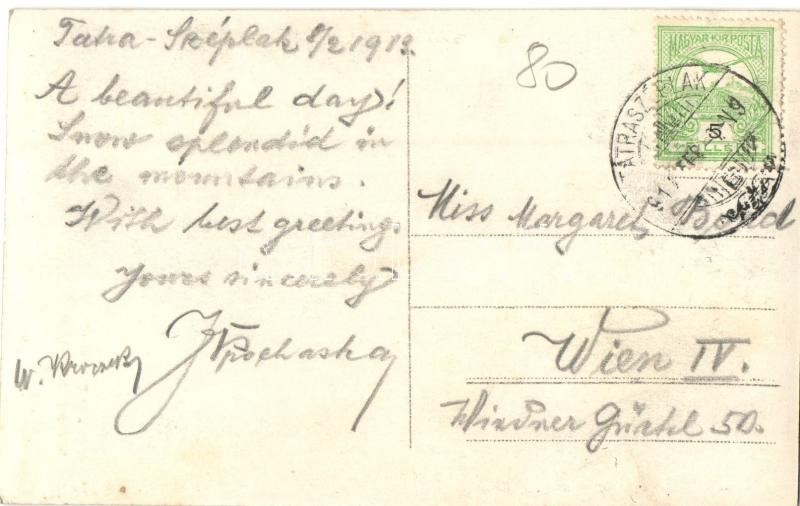 Tatra-Széplak 8/2 1913.
A beautiful day!
Snow splendid in
the mountains.
With best greetings
Yours sincerely
Prochaska
W.
80
MAGYAR·KIR·POSTA
TÁTRASZÉPLAK
Miss Margaret
Wien IV.
Wiedner Gürtel 50.